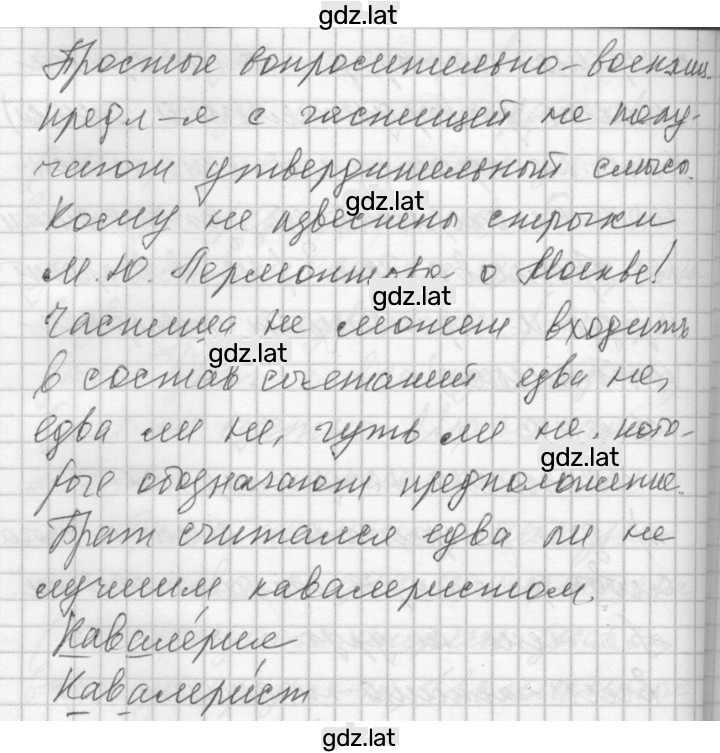 gdz.lat
Простые вопросительно-восклиц.
предл-я с частицей не полу-
чают утвердительный смысл.
gdz.lat
Кому не известны строки
М. Ю. Лермонтова о Москве!
gdz.lat
Частица не может входить
gdz.lat
в состав сочетаний едва не,
едва ли не, чуть ли не, кото-
gdz.lat
рые обозначают предположение.
Брат считался едва ли не
лучшим кавалеристом.
Кавале́рия
Кавалери́ст
gdz.lat